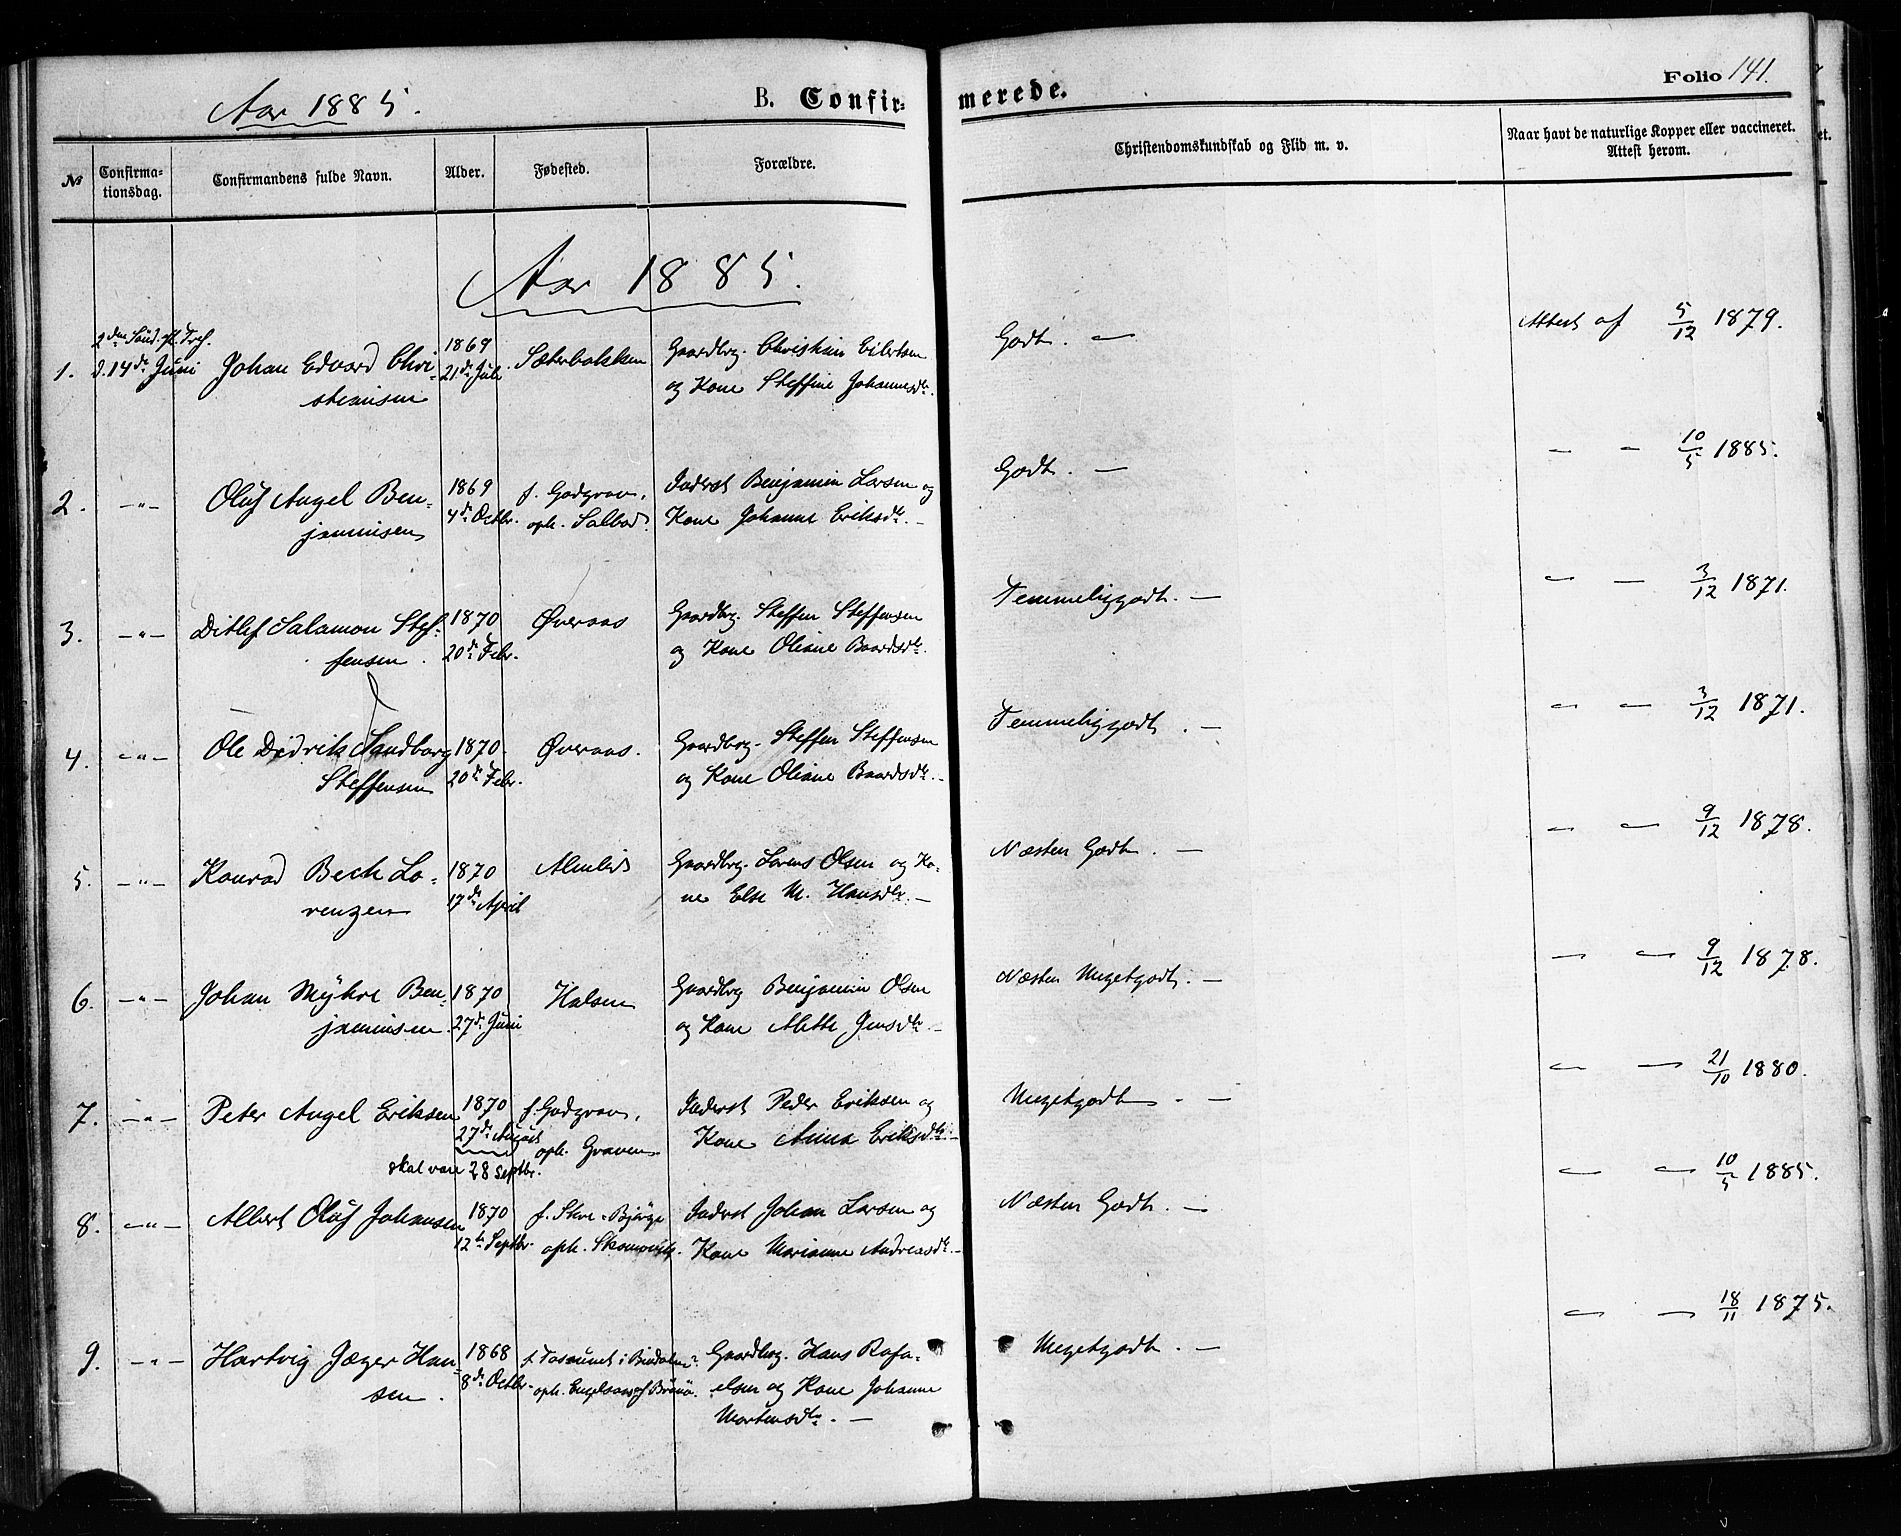 Folio 141.
Aar 1885.
B. Confirmerede.
No
Confirmationsdag.
Confirmandens fulde Navn.
Alder.
Fødested.
Forældre.
Christendomskundskab og Flid m. v.
Naar havt de naturlige Kopper eller vaccineret.
Attest herom.
Aar 1885.
1.
2den Sønd. Tref.
d. 14de Juni
Johan Edvard Chri-
stiansen
1869
21de Juli
Sæterbakken
Gaardbrg. Christian Eilertsen
og Kone Steffine Johannesdtr.
Godt. —
Attest af 5/12 1879.
2.
—"—
Oluf Angel Ben-
jaminsen
1869
4de Octbr.
f. Godgrav,
oph. Salbod.
Inderst Benjamin Larsen og
Kone Johanne Eriksdtr. —
Godt. —
— — 10/5 1885.
3.
—"—
Ditlef Salamon Stef-
fensen.
1870
20de Febr.
Øveraas
Gaardbrg. Steffen Steffensen
og Kone Oliane Baardsdtr.
Temmeliggodt. —
— — 3/12 1871.
4.
—"—
Ole Didrik Sandborg
Steffensen
1870.
20de Febr.
Øveraas.
Gaardbrg. Steffen Steffensen
og Kone Oliane Baardsdtr. —
Temmeliggodt. —
— — 3/12 1871.
5.
—"—
Konrad Bech Lo-
renzen
1870
17de April
Almlid
Gaardbrg. Lorens Olsen og Ko-
ne Else M. Hansdtr. —
Næsten Godt. —
— — 9/12 1878.
6.
—"—
Johan Myhre Ben-
jaminsen.
1870
27de Juni
Halsen
Gaardbrg Benjamin Olsen
og Kone Mette Jensdtr. —
Næsten Megetgodt. —
— — 9/12 1878.
7.
—"—
Peter Angel Eriksen
1870
27de August
skal være 28 Septbr.
f. Godgrav,
oph. Graven
Inderst Peder Eriksen og
Kone Anna Eriksdtr. —
Megetgodt. —
— — 21/10 1880.
8.
—"—
Albert Oluf Johansen
1870
12te Septbr.
oph.
Inderst Johan Larsen og
Kone Marianne Andreasdtr. —
Næsten Godt. —
— — 10/5 1885.
9.
—"—
Hartvig Jæger Han-
sen.
1868
8de Octbr.
oph.
Gaardbrg. Hans Rafa-
elsen og Kone Johanne
Mortensdtr. —
Megetgodt. —
— — 18/11 1875.